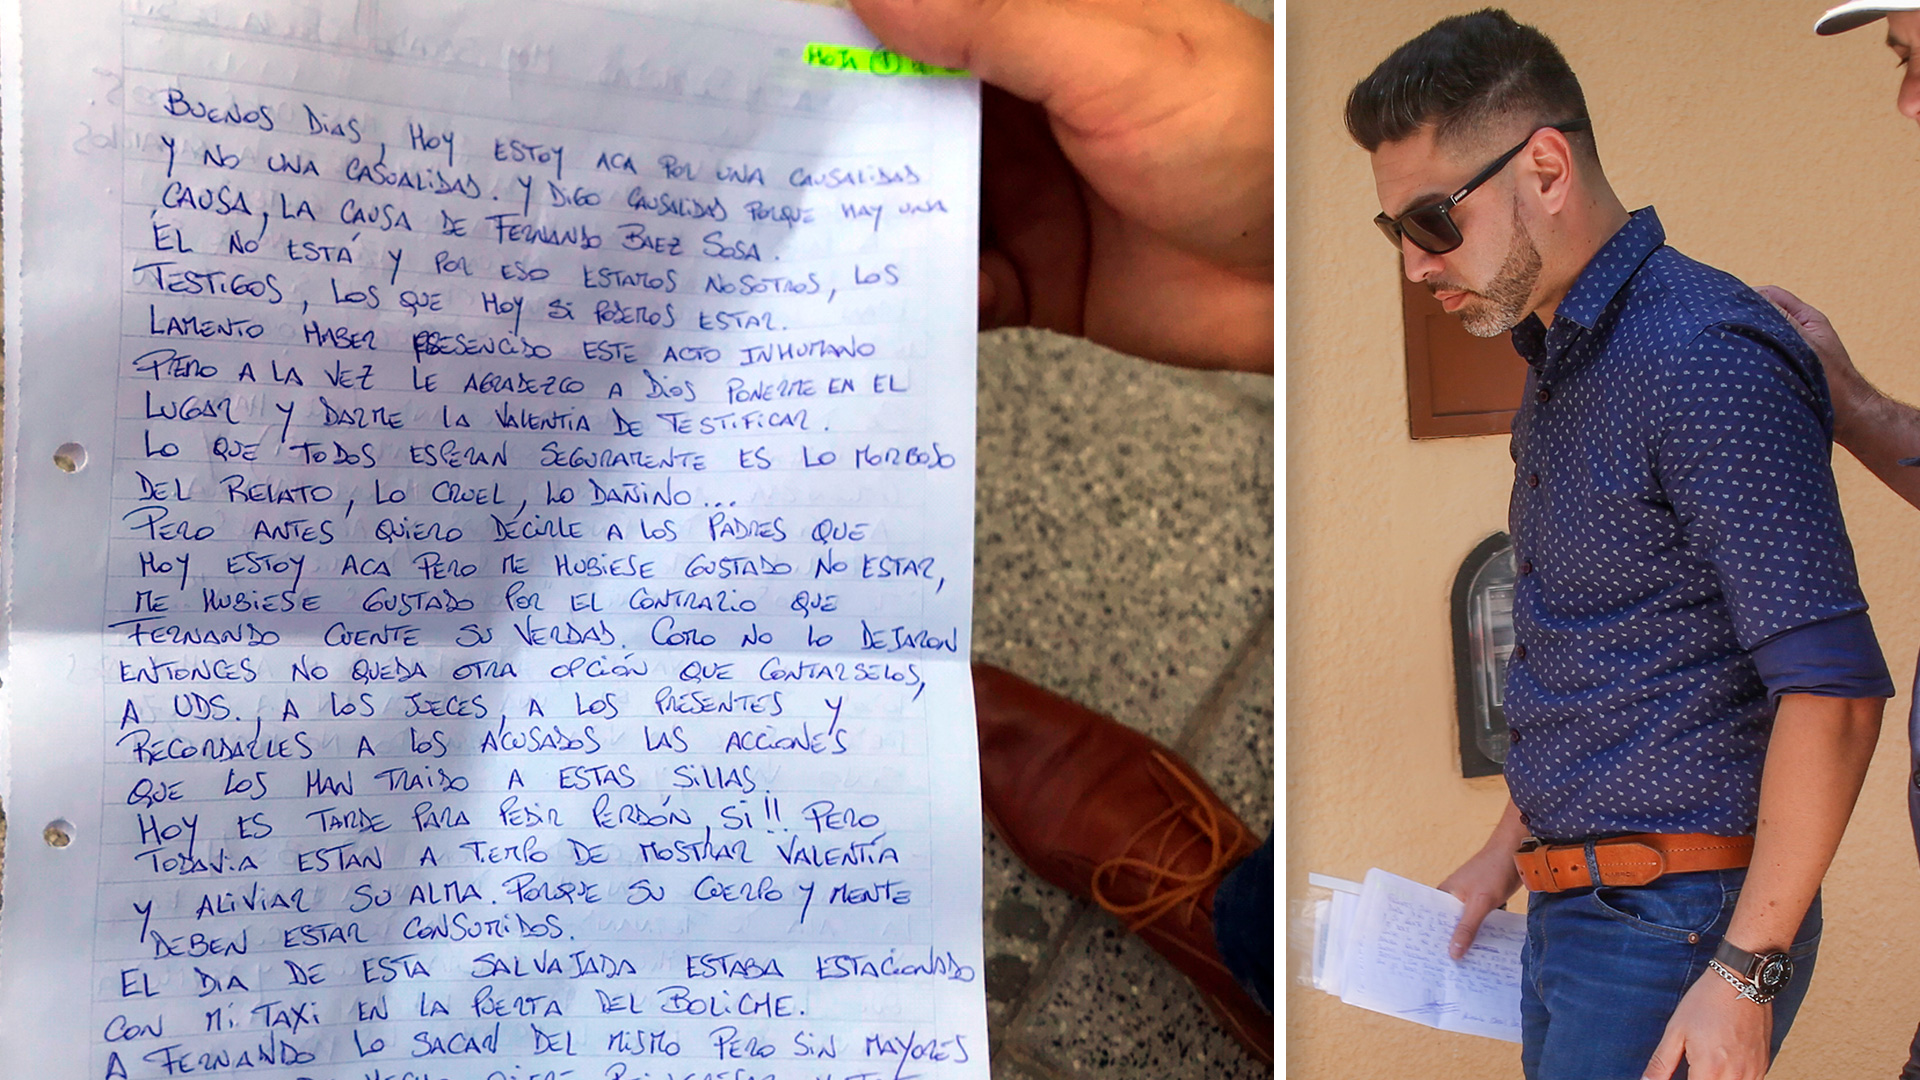 HOJA 1
BUENOS DIAS, HOY ESTOY ACA POR UNA CAUSALIDAD
Y NO UNA CASUALIDAD. Y DIGO CAUSALIDAD PORQUE HAY UNA
CAUSA, LA CAUSA DE FERNANDO BAEZ SOSA.
ÉL NO ESTÁ Y POR ESO ESTAMOS NOSOTROS, LOS
TESTIGOS, LOS QUE HOY SI PODEMOS ESTAR.
LAMENTO HABER PRESENCIDO ESTE ACTO INHUMANO
PERO A LA VEZ LE AGRADEZCO A DIOS PONERME EN EL
LUGAR Y DARME LA VALENTIA DE TESTIFICAR.
LO QUE TODOS ESPERAN SEGURAMENTE ES LO MORBOSO
DEL RELATO, LO CRUEL, LO DAÑINO...
PERO ANTES QUIERO DECIRLE A LOS PADRES QUE
HOY ESTOY ACA PERO ME HUBIESE GUSTADO NO ESTAR,
ME HUBIESE GUSTADO POR EL CONTRARIO QUE
FERNANDO CUENTE SU VERDAD. COMO NO LO DEJARON
ENTONCES NO QUEDA OTRA OPCIÓN QUE CONTARSELOS,
A UDS., A LOS JUECES, A LOS PRESENTES Y
RECORDARLES A LOS ACUSADOS LAS ACCIONES
QUE LOS HAN TRAIDO A ESTAS SILLAS.
HOY ES TARDE PARA PEDIR PERDÓN, SI!! PERO
TODAVIA ESTAN A TIEMPO DE MOSTRAR VALENTÍA
Y ALIVIAR SU ALMA. PORQUE SU CUERPO Y MENTE
DEBEN ESTAR CONSUMIDOS.
EL DIA DE ESTA SALVAJADA ESTABA ESTACIONADO
CON MI TAXI EN LA PUERTA DEL BOLICHE.
A FERNANDO LO SACAN DEL MISMO PERO SIN MAYORES